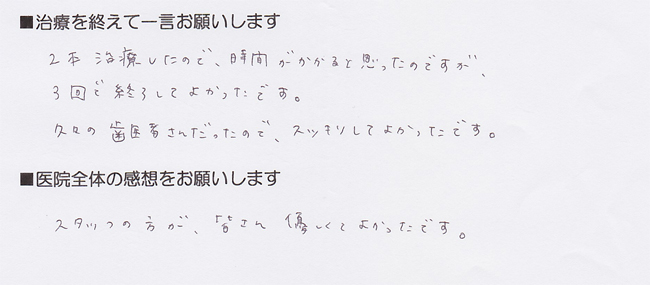 ■治療を終えて一言お願いします
2本 治療したので、時間がかかると思ったのですが、
3回で終了してよかったです。
久々の歯医者さんだったので、スッキリしてよかったです。
■医院全体の感想をお願いします
スタッフの方が、皆さん 優しくてよかったです。